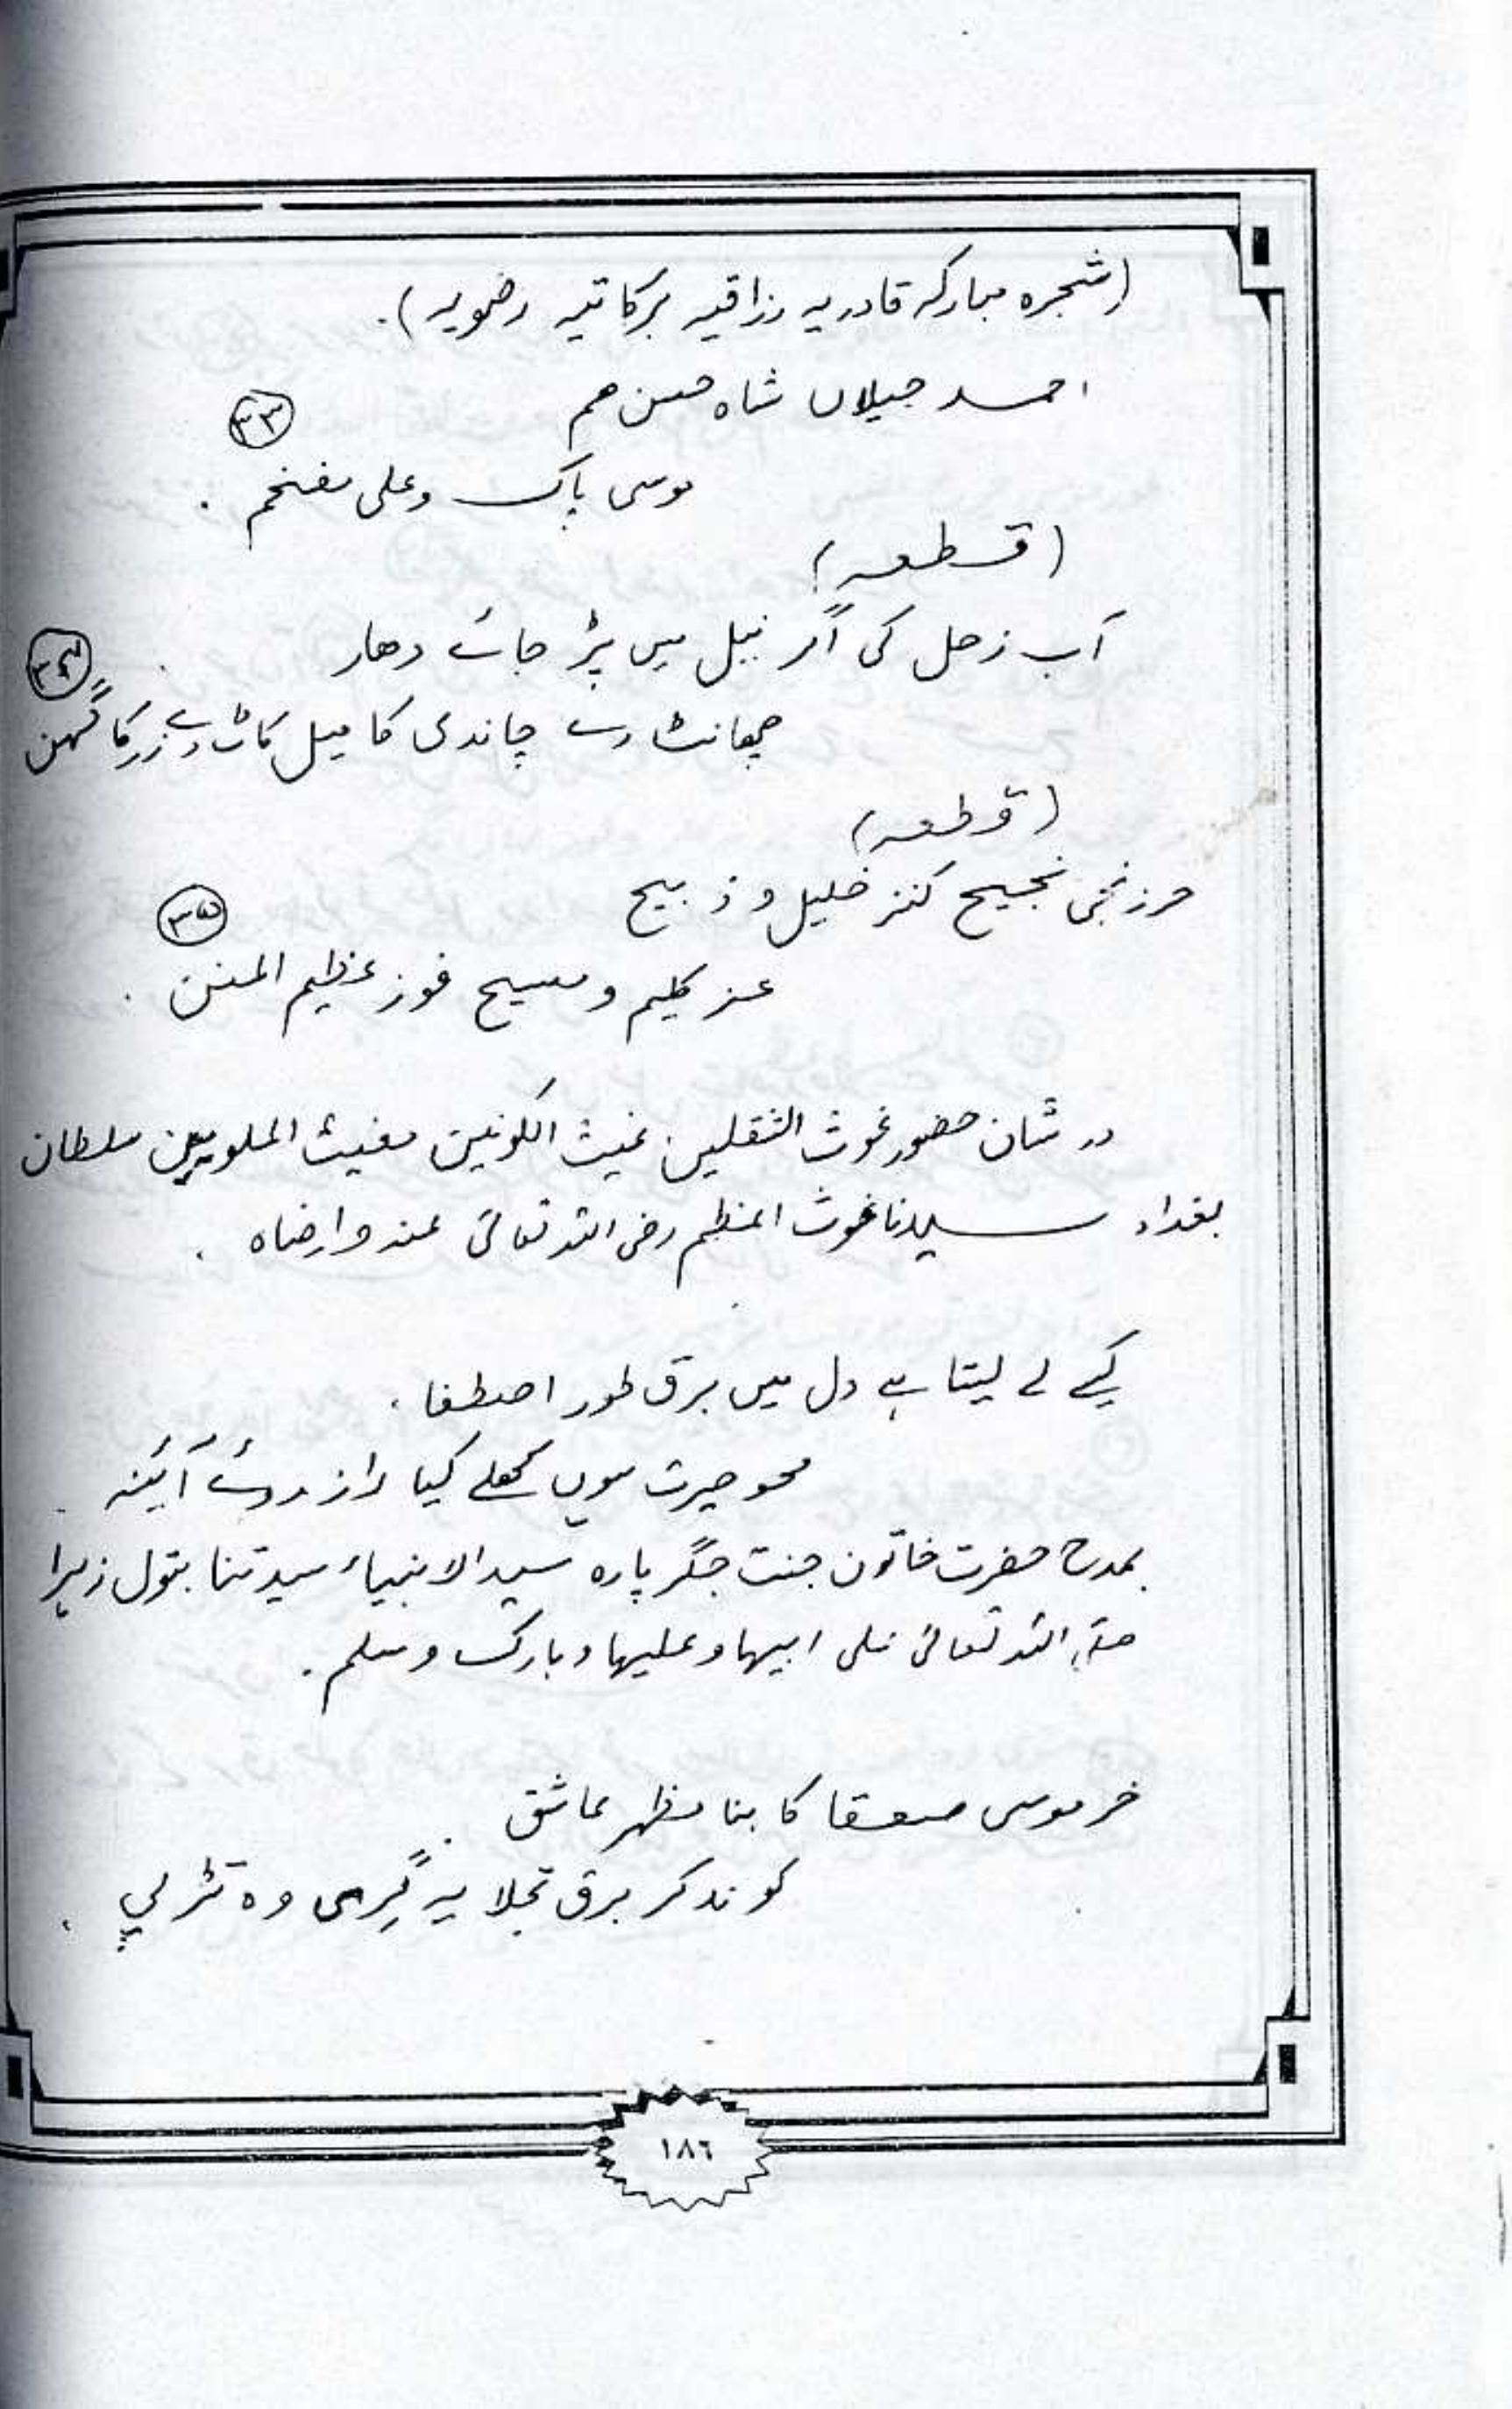 (شجرہ مبارکہ قادریہ رزاقیہ برکاتیہ رضویہ).
احمد جیلاں شاہ حسن ہم
۳۳
موسی پاک وعلی مفخم .
(قطعہ)
آب زحل کی اگر نیل میں پڑ جائے دھار
۳۴
چھانٹ دے چاندی کا میل کاٹ دے زر کا گہن
(قطعہ)
حرز نجی نجیح کنز خلیل و ذبیح
۳۵
عز کلیم و مسیح فوز عظیم المنن .
در شان حضور غوث الثقلین غیث الکونین مغیث الملوین سلطان
بغداد سیدنا غوث اعظم رضی اللہ تعالیٰ عنہ وارضاہ .
کیے لے لیتا ہے دل میں برق طور اصطفا .
محو حیرت ہوں کھلے کیا راز روئے آئینہ .
بمدح حضرت خاتون جنت جگر پارہ سید الانبیاء سیدتنا بتول زہرا
اللہ تعالیٰ علی ابیہا وعلیہا وبارک وسلم .
خر موسی صعقا کا بنا مظہر عاشق .
کوند کر برق تجلا یہ گری وہ تڑپے .
١٨٦